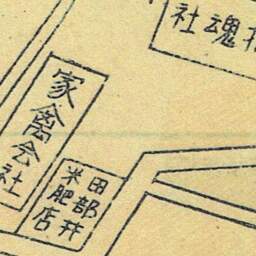 魂社
家禽会社
田部井
米肥店